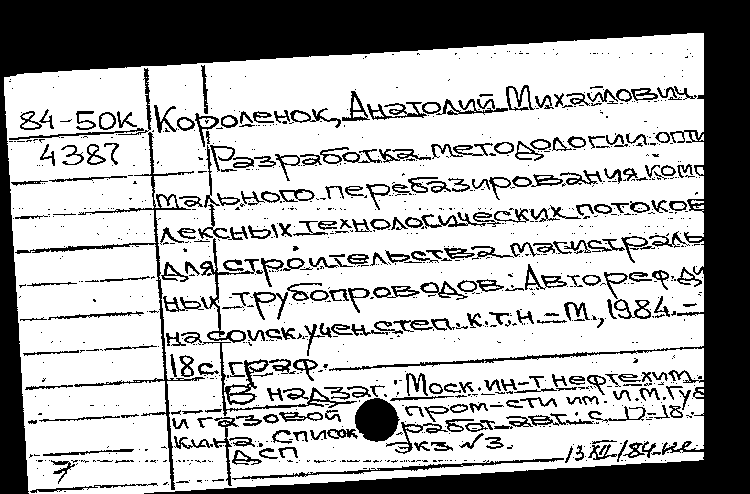 84-50К Короленок, Анатолий Михайлович
4387 Разработка методологии опти
мального перебазирования комп
лексных технологических потоков
для строительства магистраль
ных трубопроводов: Автореф. ди
на соиск. учен. степ. к.т.н. – М., 1984. –
18с. граф.
В надзаг.: Моск. ин-т нефтехим.
и газовой пром-сти им. И.М. Губ
кина. Список работ авт.: с. 17-18.
ДСП Экз. №3.
7 13 XII/84